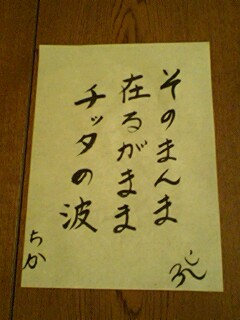 そのまんま
在るがまま
チッタの波
ちか